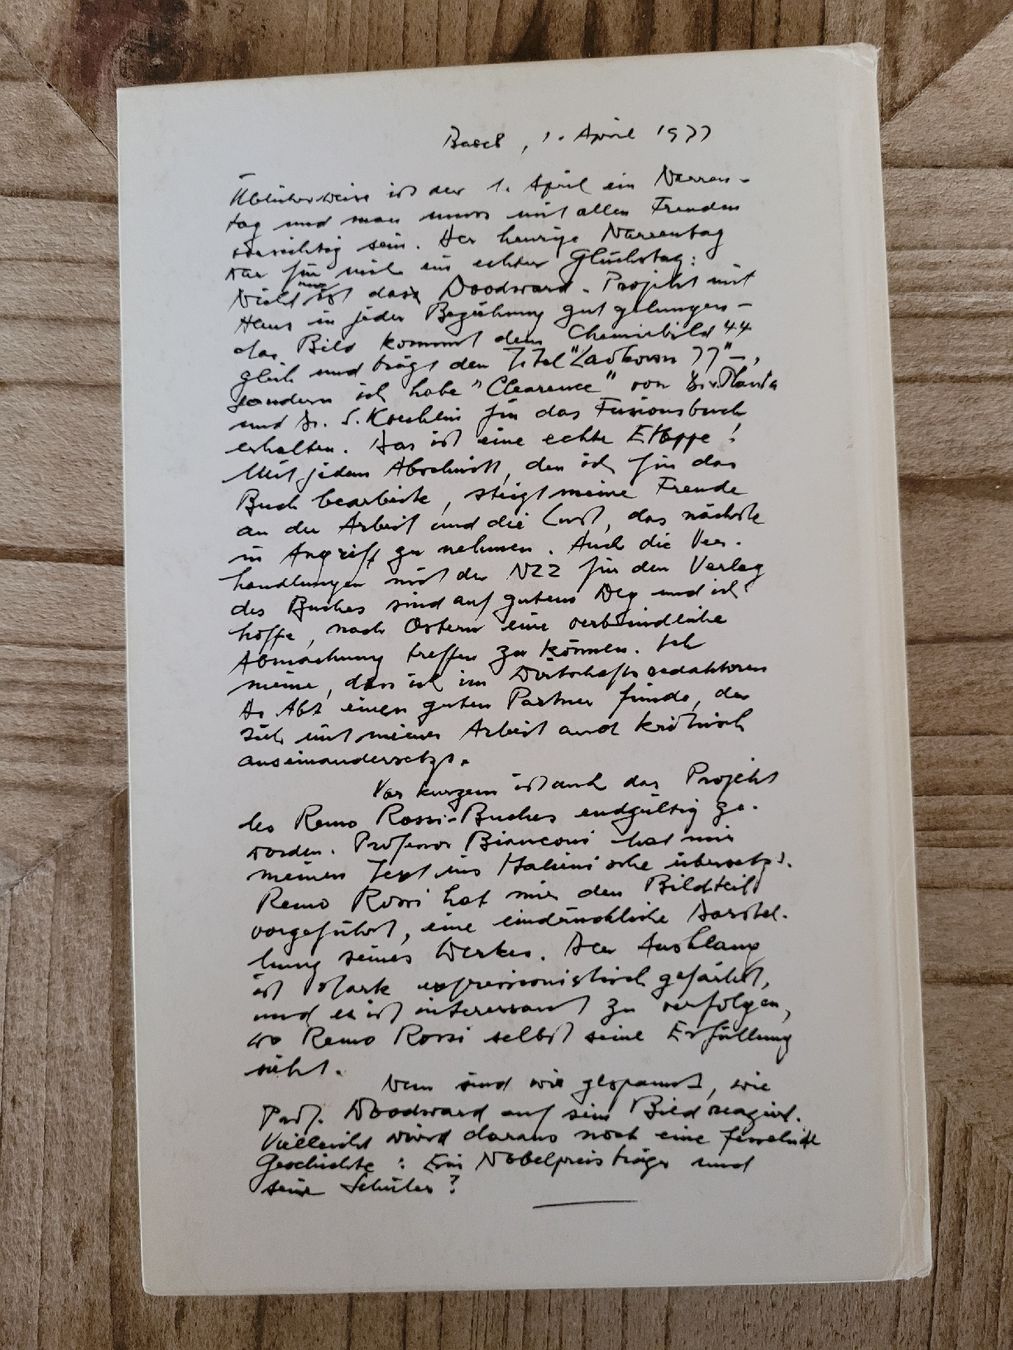 Basel, 1. April 1977
Üblicherweise ist der 1. April ein Narren-
tag und man muss mit allen Freuden
vorsichtig sein. Der heurige Narrentag
war für mich ein echter Glückstag:
Nicht nur ist das Woodward-Projekt mit
Hans in jeder Beziehung gut gelungen –
das Bild kommt dem Chemiebild 44
gleich und trägt den Titel " 77" –,
sondern ich habe "Clearence" von Dr. v. Planta
und Dr. S. Koechlin für das Fusionsbuch
erhalten. Das ist eine echte Etappe!
Mit jedem Abschnitt, den ich für das
Buch bearbeite, steigt meine Freude
an der Arbeit und die Lust, das nächste
in Angriff zu nehmen. Auch die Ver-
handlungen mit der NZZ für den Verlag
des Buches sind auf gutem Weg und ich
hoffe, nach Ostern eine verbindliche
Abmachung treffen zu können. Ich
meine, dass ich im Wirtschaftsredaktoren
Dr. Abt einen guten Partner finde, der
sich mit meiner Arbeit auch kritisch
auseinandersetzt.
Vor kurzem ist auch das Projekt
des Remo Rossi-Buches endgültig ge-
worden. Professor Bianconi hat mir
meinen Text ins Italienische übersetzt.
Remo Rossi hat mir den Bildteil
vorgeführt, eine eindrückliche Darstel-
lung seines Werkes. Der Ausklang
ist stark expressionistisch gefärbt,
und es ist interessant zu verfolgen,
wo Remo Rossi selbst seine Erfüllung
sieht.
Nun sind wir gespannt, wie
Prof. Woodward auf sein Bild reagiert.
Vielleicht wird daraus noch eine
Geschichte: Ein Nobelpreisträger und
seine Schüler?